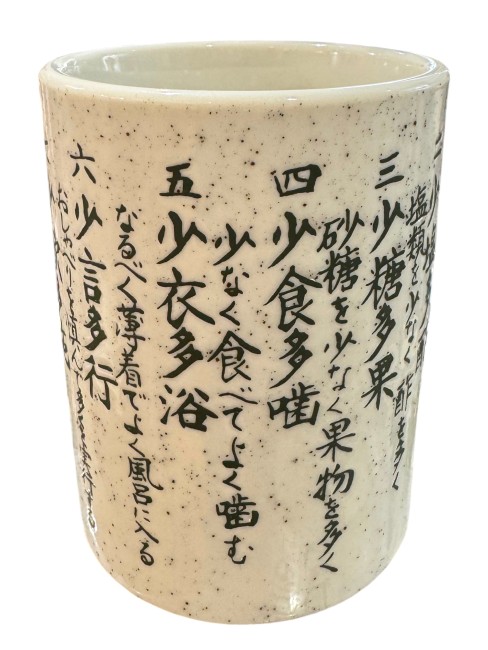 二少塩多酢
塩類を少なく酢を多く
三少糖多果
砂糖を少なく果物を多く
四少食多噛
少なく食べてよく噛む
五少衣多浴
なるべく薄着でよく風呂に入る
六少言多行
おしゃべりを慎んで